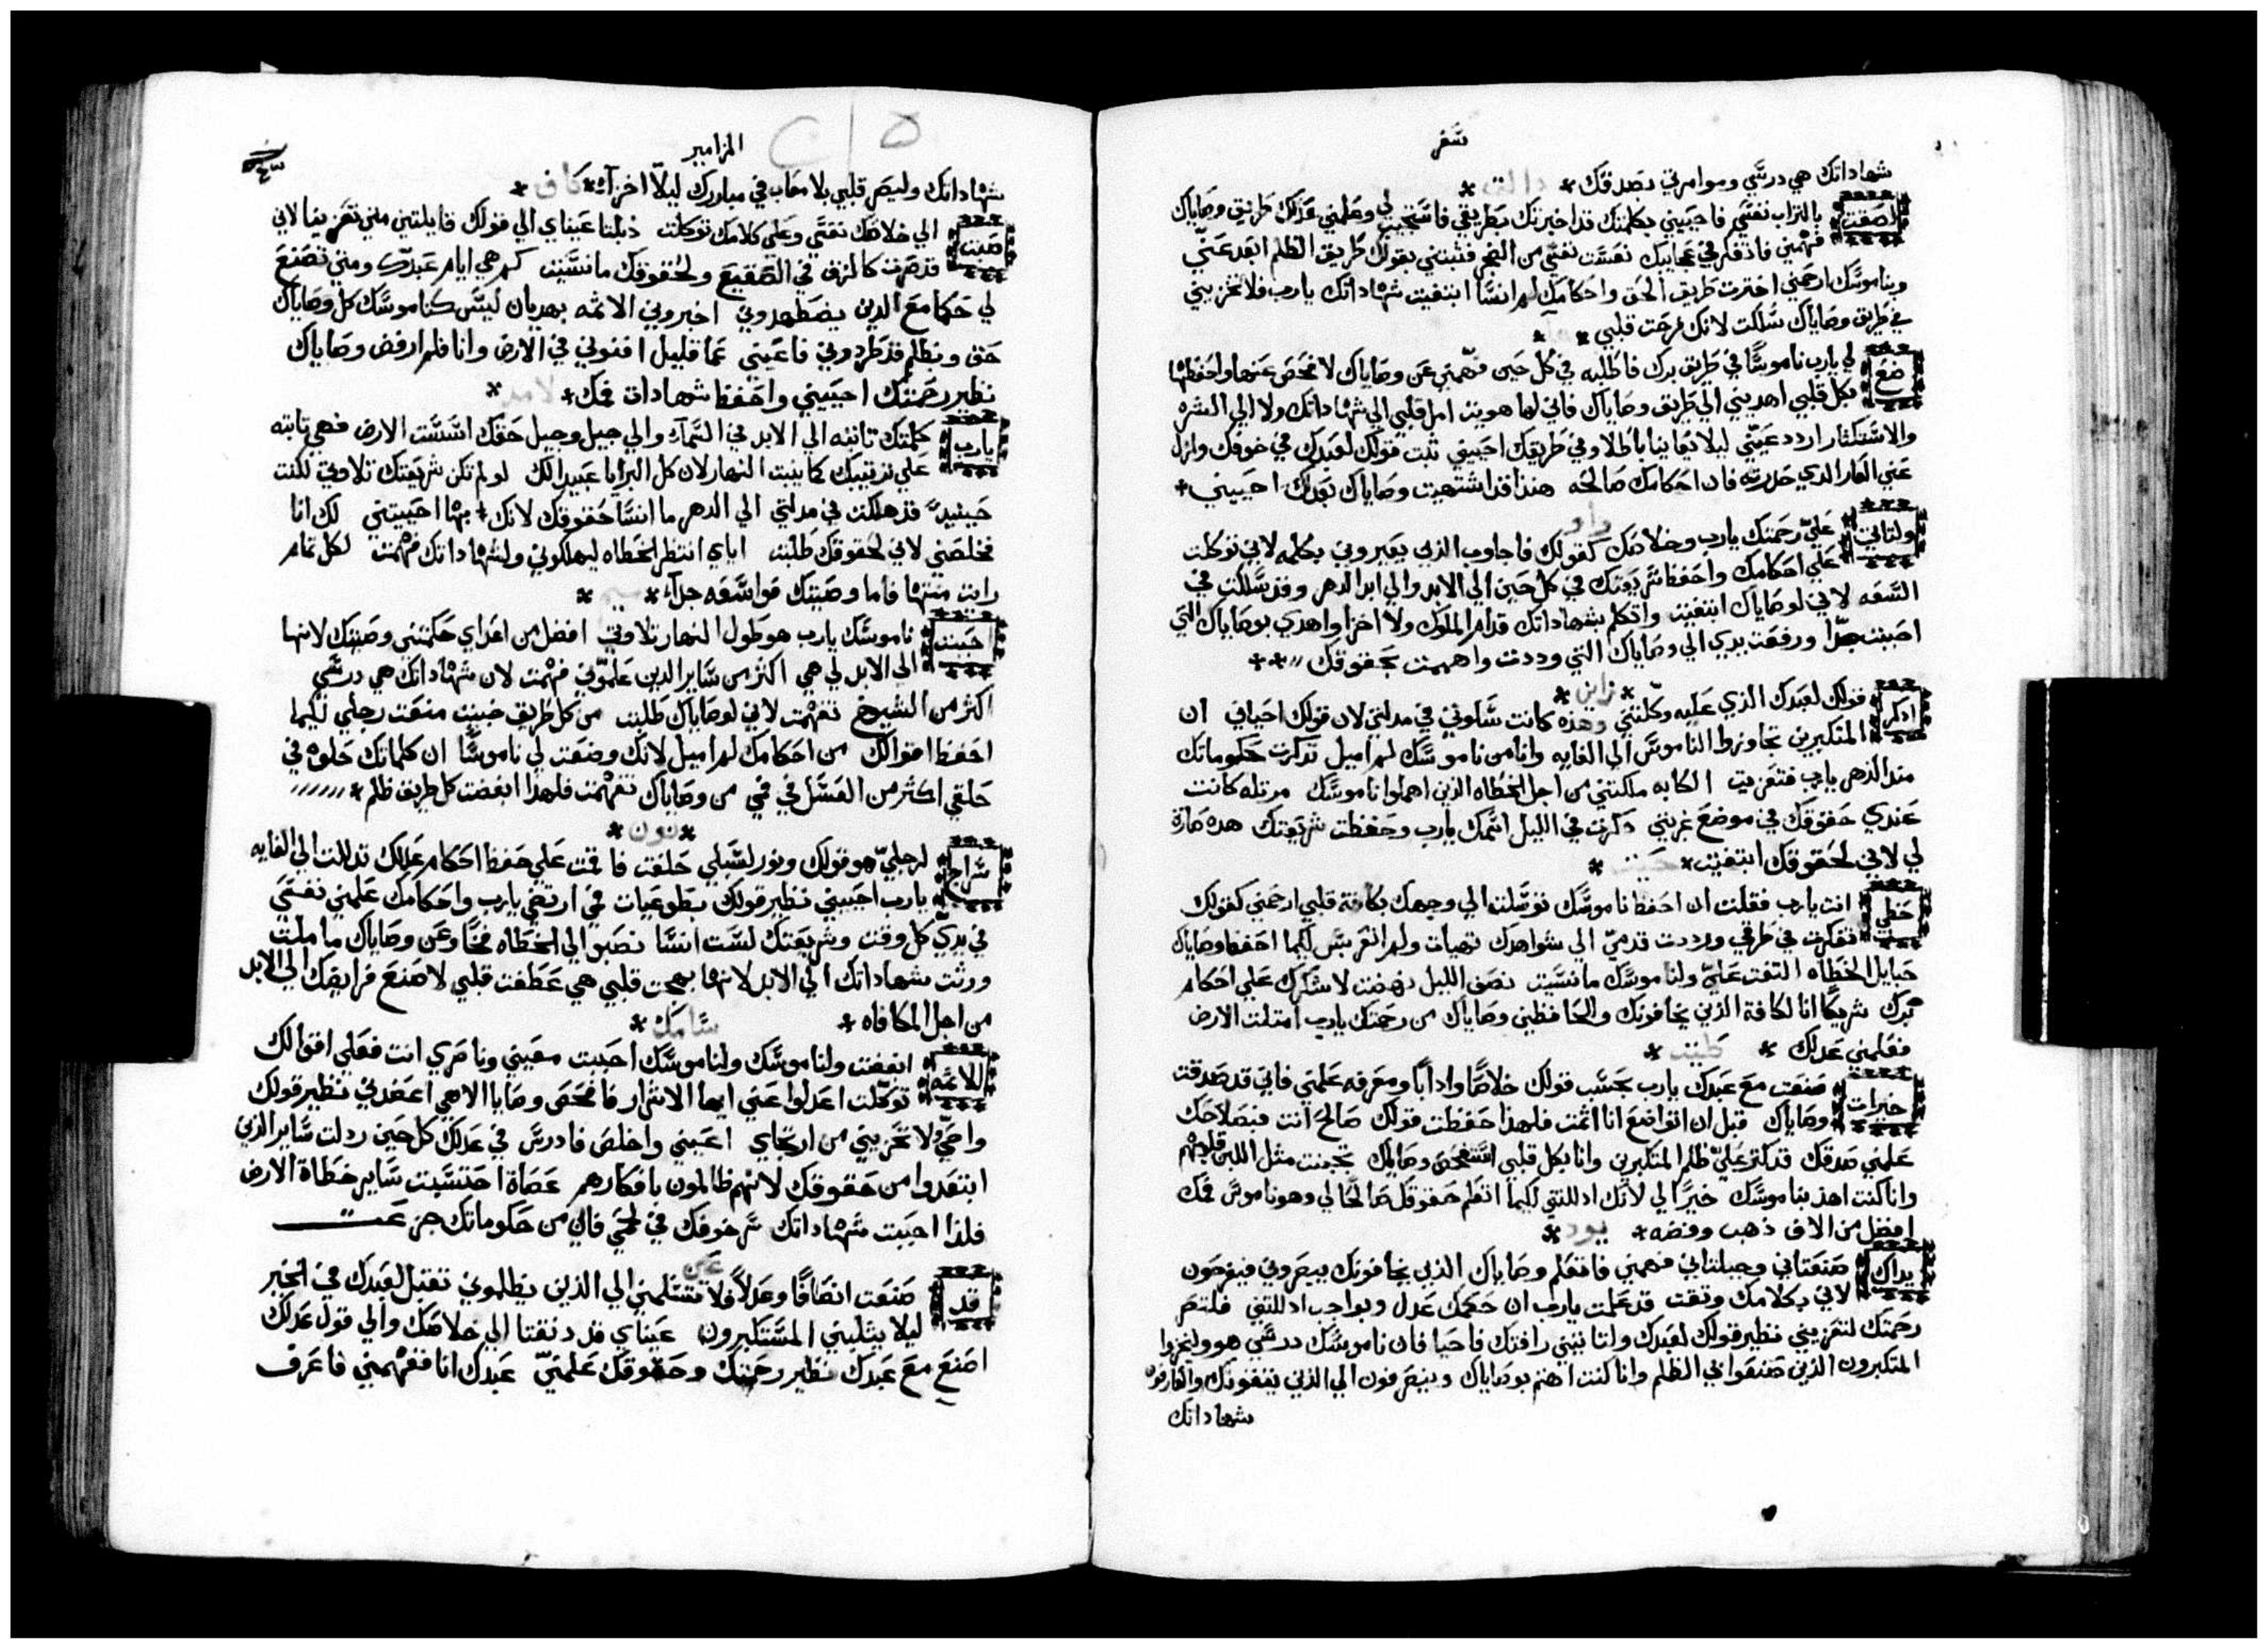 سفر
شهاداتك هي درسي وموامرتي بصدقك * دالت *
لصقت بالتراب نفسي فاحييني بكلمتك قد اخبرتك بطريقي فاستجبت لي وعلمني عدلك طريق وصاياك
فهمني فاذكر في عجايبك نعست نفسي من الضجر فثبتني بقولك طريق الظلم ابعد عني
وبناموسك ارحمني اخترت طريق الحق واحكامك لم انسا ابتغيت شهاداتك يارب فلا تخزيني
في طريق وصاياك سلكت لانك فرجت قلبي *
ضع لي يارب ناموسا في طريق برك فاطلبه في كل حين فهمني عن وصاياك لافحص عنها واحفظها
بكل قلبي اهديني الي طريق وصاياك فاني لها هويت امل قلبي الي شهاداتك ولا الي الشره
والاستكثار اردد عيني ليلا تعاينا باطلا وفي طريقك احييني ثبت قولك لعبدك في خوفك وازل
عني العار الذي حذرته فان احكامك صالحه هنذا قد اشتهيت وصاياك بعدلك احييني *
واو
ولتاتي علي رحمتك يارب وخلاصك كقولك فاجاوب الذين يعيروني بكلمه لاني توكلت
علي احكامك واحفظ شريعتك في كل حين الي الابد والي ابد الدهر وقد سلكت في
السعه لاني لوصاياك ابتغيت واتكلم بشهاداتك قدام الملوك ولا اخزا واهدي بوصاياك التي
احببت جدا ورفعت يدي الي وصاياك التي وددت واهممت بحقوقك * *
* زاين *
اذكر قولك لعبدك الذي عليه وكلتني وهذه كانت سلوتي في مذلتي لان قولك احياني ان
المتكبرين تجاوزوا الناموس الي الغايه وانا من ناموسك لم اميل تذكرت حكوماتك
منذ الدهر يارب فتعزيت الكابه ملكتني من اجل الخطاه الذين اهملوا ناموسك مرتله كانت
عندي حقوقك في موضع غربتي ذكرت في الليل اسمك يارب وحفظت شريعتك هذه صارة
لي لاني لحقوقك ابتغيت * حيت *
حظي انت يارب فقلت ان احفظ ناموسك توسلت الي وجهك بكافة قلبي ارحمني كقولك
تفكرت في طرقي ورددت قدمي الي شواهدك تهيات ولم اتعربس لكيما احفظ وصاياك
حبايل الخطاه التفت علي ولناموسك ما نسيت نصف الليل نهضت لاشكرك علي احكام
برك شريكا انا لكافة الذين يخافونك والحافظين وصاياك من رحمتك يارب امتلت الارض
فعلمني عدلك * طيت *
خيرات صنعت مع عبدك يارب بحسب قولك خلاصا وادابا ومعرفه علمني فاني قد صدقت
وصاياك قبل ان اتواضع انا اثمت فلهذا حفظت قولك صالح انت فبصلاحك
علمني صدقك قد كثر علي ظلم المتكبرين وانا بكل قلبي استفحص وصاياك تجبنت مثل اللبن قلبهم
وانا كنت اهذ بناموسك خيرا لي لانك اذللتني لكيما اتعلم حقوقك صالحا لي وهو ناموس فمك
افضل من الاف ذهب وفضه * يود *
يداك صنعتاني وجبلتاني فهمني فاتعلم وصاياك الذين يخافونك يبصروني فيفرحون
لاني بكلامك وثقت قد علمت يارب ان حكمك عدل وبواجب اذللتني فلتصر
رحمتك لتعزيني نظير قولك لعبدك ولتاتيني رافتك فاحيا فان ناموسك درسي هو وليخزوا
المتكبرون الذين صنعوا بي الظلم وانا كنت اهتم بوصاياك وينصرفون الي الذين يتقونك والعارفون
شهاداتك
المزامير
شهاداتك وليصر قلبي بلا معاب في مبادرك ليلا اخزا * كاف *
صبت الي خلاصك نفسي وعلي كلامك توكلت ذبلتا عيناي الي قولك قايلتين متي تعزينا لاني
قد صرت كالزق في الصقيع ولحقوقك ما نسيت كم هي ايام عبدك ومتي تصنع
لي حكما مع الذين يضطهدوني اخبروني الاثمه بهديان ليس كناموسك كل وصاياك
حق وبظلم قد طردوني فاعيني عما قليل افنوني في الارض وانا فلم ارفض وصاياك
نظير رحمتك احييني واحفظ شهادات فمك * لامد *
يارب كلمتك ثابته الي الابد في السماء والي جيل وجيل حقك اسست الارض فهي ثابته
علي ترتيبك كما يثبت النهار لان كل البرايا عبيدا لك لو لم تكن شريعتك تلاوتي لكنت
حينيذ قد هلكت في مذلتي الي الدهر ما انسا حقوقك لانك بها احييتني لك انا
فخلصني لاني لحقوقك طلبت اياي انتظر الخطاه ليهلكوني ولشهاداتك فهمت لكل تمام
رايت منتها فاما وصيتك فواسعه جدا * ميم *
حببت ناموسك يارب هو طول النهار تلاوتي افضل من اعداي حكمتني وصيتك لانها
الي الابد لي هي اكثر من ساير الذين علموني فهمت لان شهاداتك هي درسي
اكثر من الشيوخ تفهمت لاني لوصاياك طلبت من كل طريق خبيث منعت رجلي لكيما
احفظ اقوالك من احكامك لم اميل لانك وضعت لي ناموسا ان كلماتك حلوه في
حلقي اكثر من العسل في فمي من وصاياك تفهمت فلهذا ابغضت كل طريق ظلم *
* نون *
سراج لرجلي هو قولك ونور لسبلي حلفت فاقمت علي حفظ احكام عدلك تذللت الي الغايه
يارب احييني نظير قولك بطوعيات فمي ارتضي يارب واحكامك علمني نفسي
في يدي كل وقت وشريعتك لست انسا نصبوا لي الخطاه فخا وعن وصاياك ما ملت
ورثت شهاداتك الي الابد لانها بهجت قلبي هي عطفت قلبي لاصنع فرايضك الي الابد
من اجل المكافاه * سامك *
للاثمه ابغضت ولناموسك ولناموسك احببت معيني وناصري انت فعلي اقوالك
توكلت اعدلوا عني ايها الاشرار فافحص وصايا الاهي اعضدني نظير قولك
واحيي ولا تخزيني من ارتجاي اعيني واخلص فادرس في عدلك كل حين رذلت ساير الذين
ابتعدوا من حقوقك لانهم ظالمون بافكارهم عصاة احتسبت ساير خطاة الارض
فلذا احببت شهاداتك سمر خوفك في لحمي فاني من حكوماتك جزعت
عين
قد صنعت انصافا وعدلا فلا تسلمني الي الذين يظلموني تقبل لعبدك في الخير
ليلا يثلبني المستكبرون عيناي قد دنفتا الي خلاصك والي قول عدلك
اصنع مع عبدك نظير رحمتك وحقوقك علمني عبدك انا ففهمني فاعرف